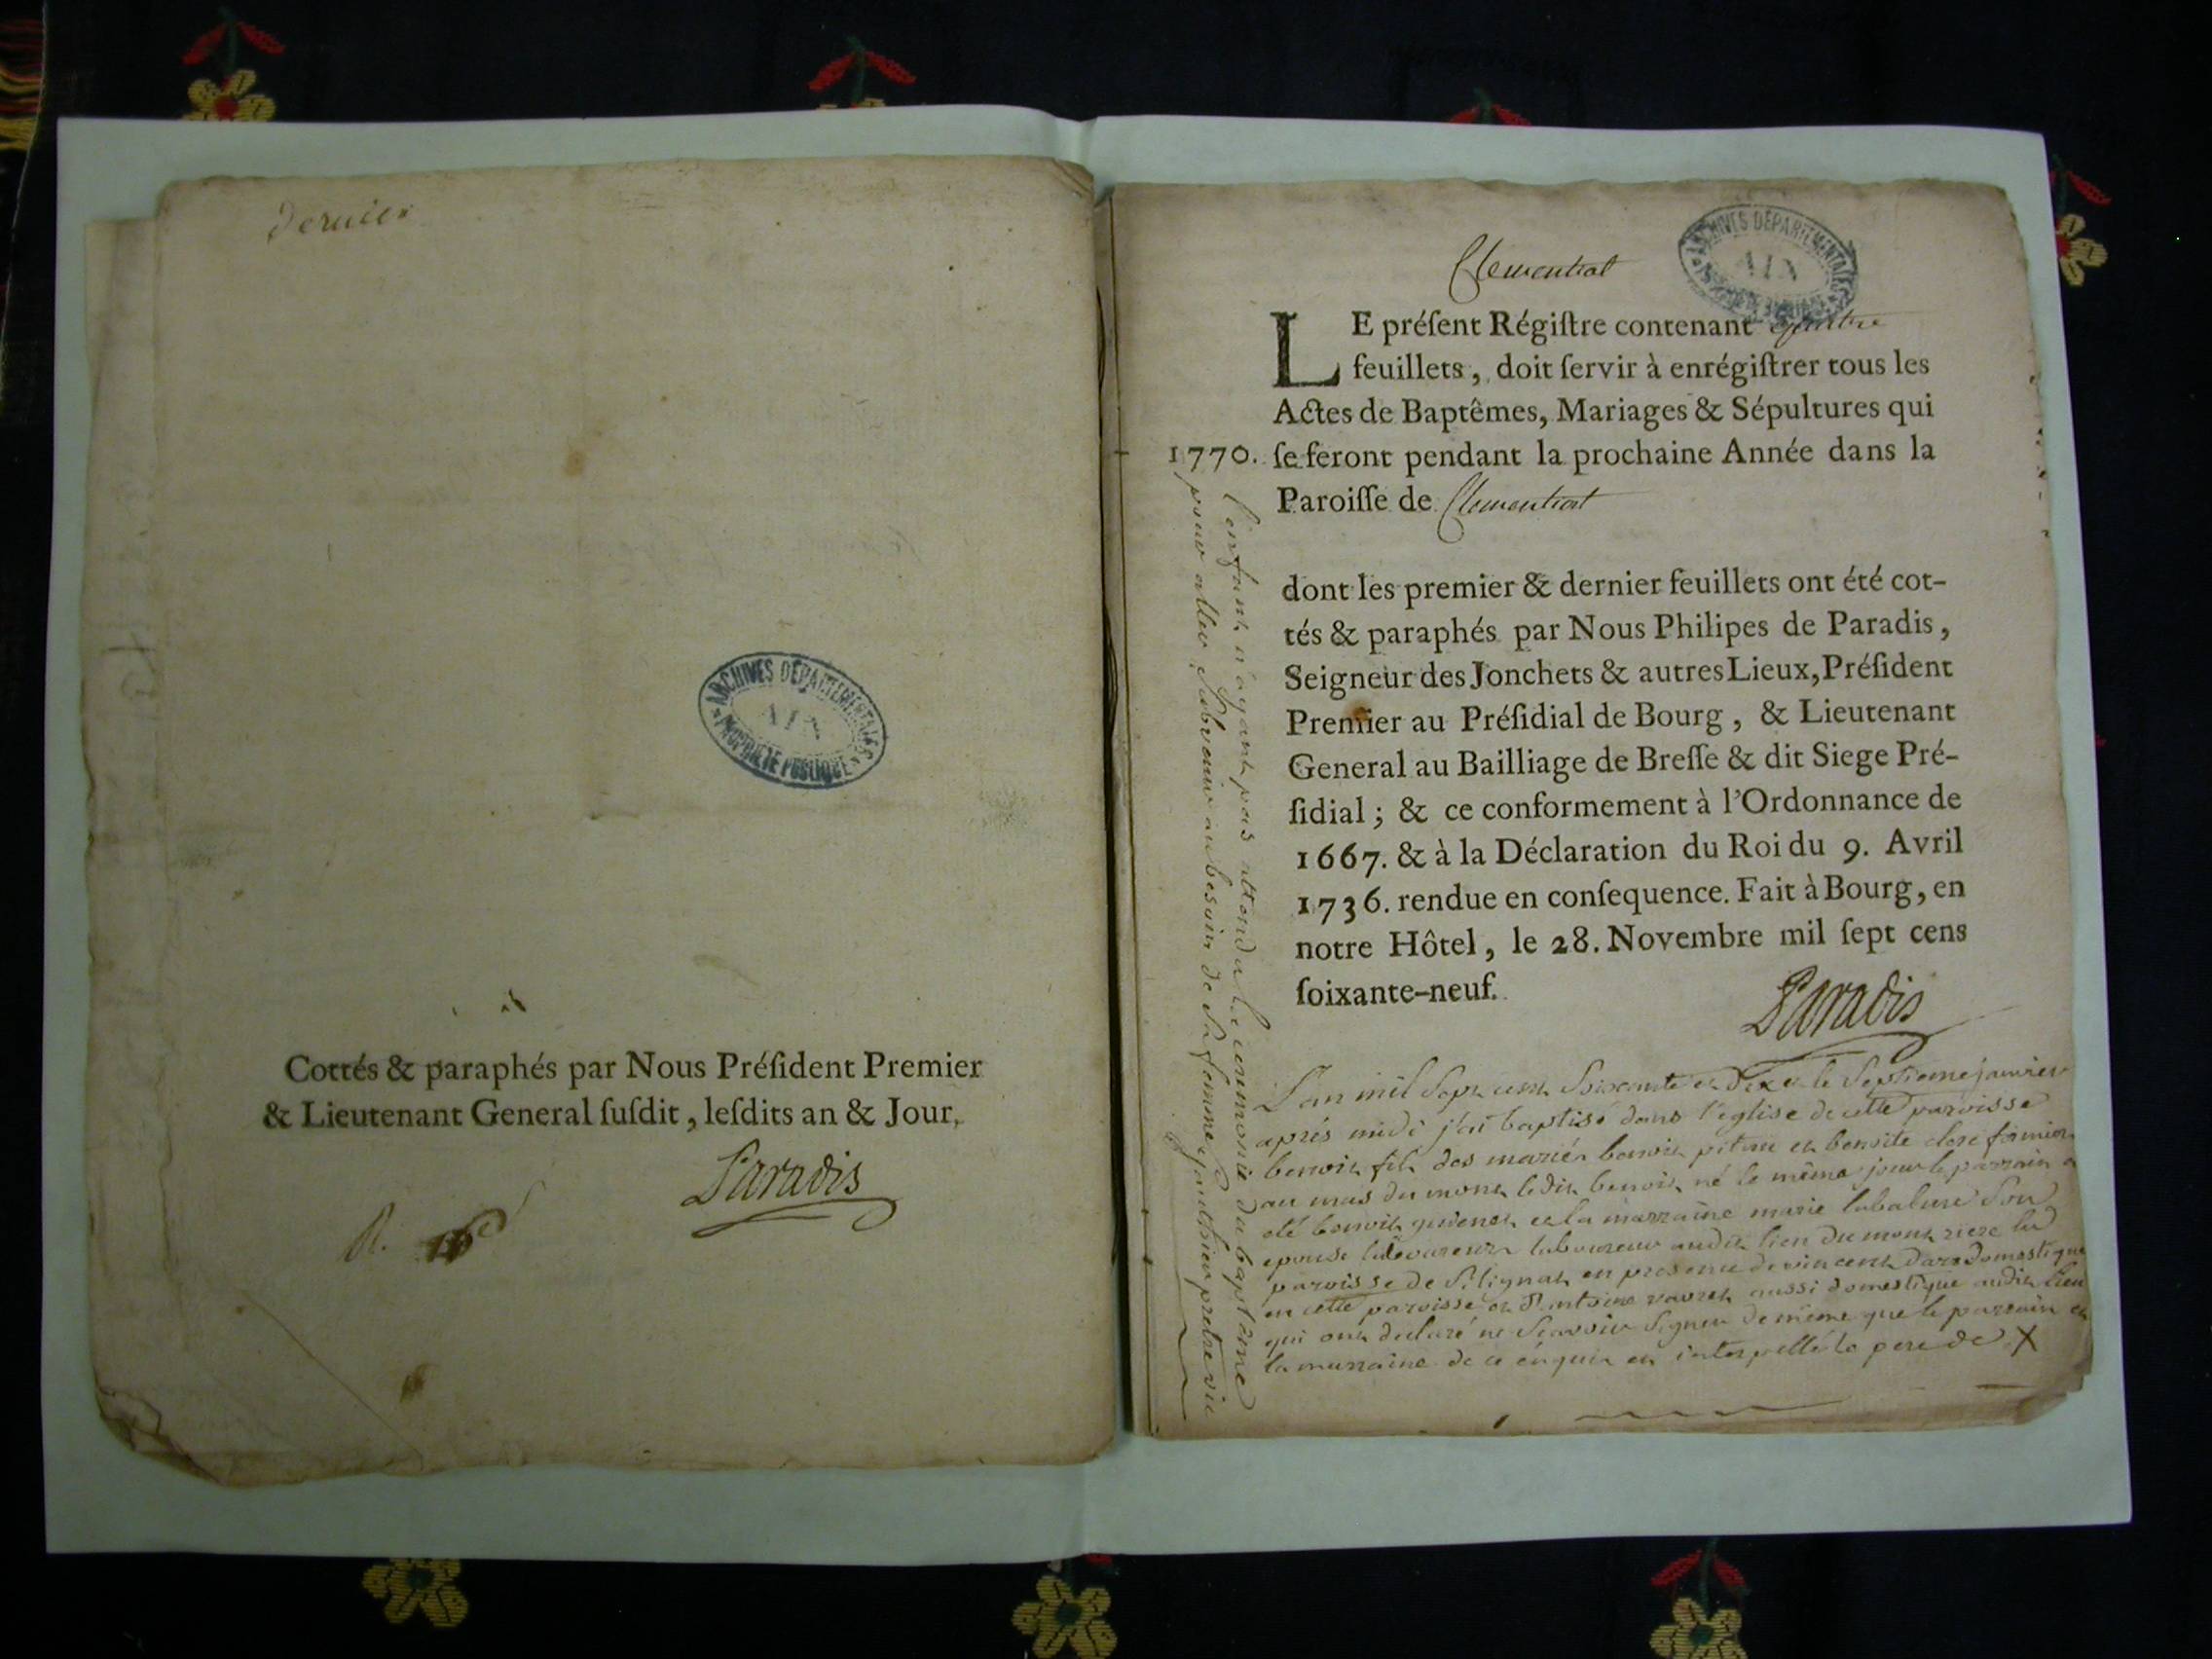 dernier
ARCHIVES DÉPARTEMENTALES
AIN
PROPRIÉTÉ PUBLIQUE
Cottés & paraphés par Nous Préſident Premier
& Lieutenant General ſuſdit, leſdits an & Jour,
Paradis
R.
Clementiat
ARCHIVES DÉPARTEMENTALES
AIN
LE préſent Régiſtre contenant quatre
feuillets, doit ſervir à enrégiſtrer tous les
Actes de Baptêmes, Mariages & Sépultures qui
1770. ſe feront pendant la prochaine Année dans la
Paroiſſe de Clementiat
dont les premier & dernier feuillets ont été cot-
tés & paraphés par Nous Philipes de Paradis,
Seigneur des Jonchets & autres Lieux, Préſident
Premier au Préſidial de Bourg, & Lieutenant
General au Bailliage de Breſſe & dit Siege Pré-
ſidial; & ce conformement à l'Ordonnance de
1667. & à la Déclaration du Roi du 9. Avril
1736. rendue en conſequence. Fait à Bourg, en
notre Hôtel, le 28. Novembre mil ſept cens
ſoixante-neuf.
Paradis
L'an mil sept cent soixante et dix et le septieme janvier
après midi j'ai baptisé dans l'eglise de cette paroisse
benoit fils des mariés benoit et benoite
au mas du mont ledit benoit né le même jour le parrain a
eté benoit et la marraine marie son
epouse laboureur audit lieu du mont riere la
paroisse de en presence de vincent domestique
en cette paroisse et antoine aussi domestique audit lieu
qui ont declaré ne scavoir signer de même que le parrain et
la marraine de ce enquis et interpellé le pere de X
l'enfant n'ayant pas attendu la ceremonie du bapteme
pour aller subvenir au besoin de sa femme